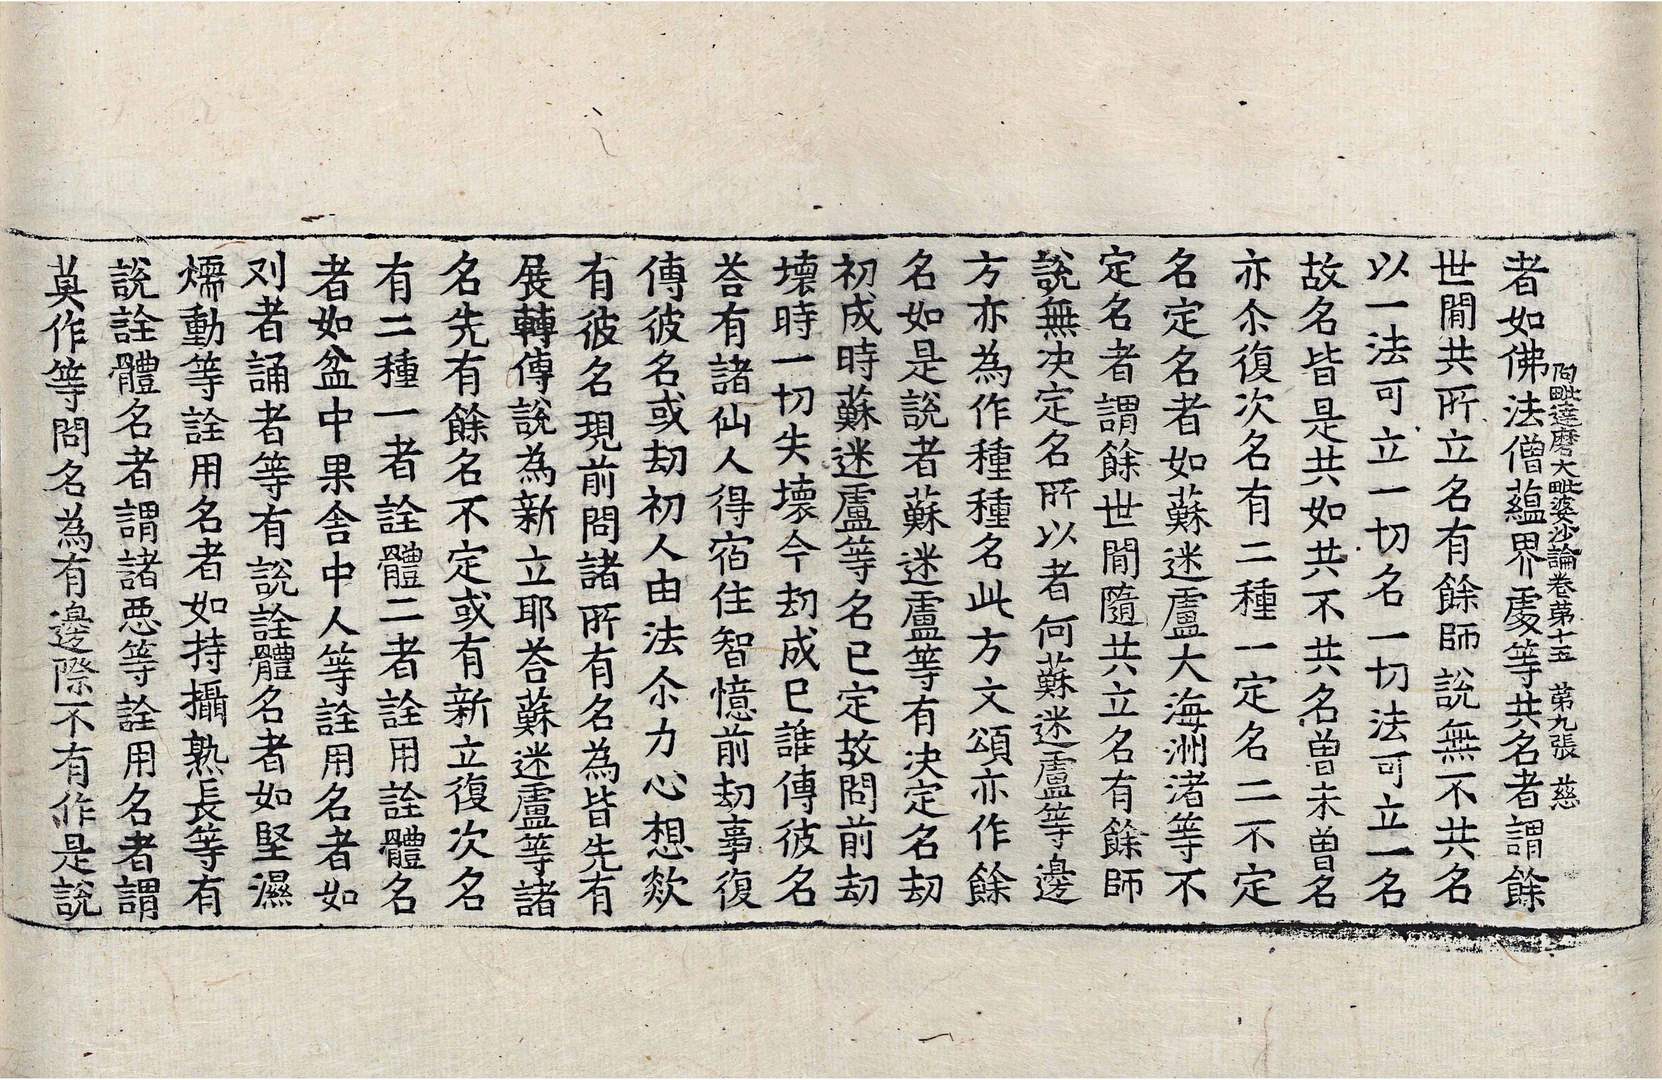 阿毗達磨大毗婆沙論卷第十五　第九張　慈
者如佛法僧蘊界處等共名者謂餘
世閒共所立名有餘師說無不共名
以一法可立一切名一切法可立一名
故名皆是共如共不共名曾未曾名
亦尒復次名有二種一定名二不定
名定名者如蘇迷盧大海洲渚等不
定名者謂餘世間隨共立名有餘師
說無决定名所以者何蘇迷盧等邊
方亦為作種種名此方文頌亦作餘
名如是說者蘇迷盧等有决定名劫
初成時蘇迷盧等名已定故問前劫
壞時一切失壞今劫成已誰傳彼名
荅有諸仙人得宿住智憶前劫事復
傳彼名或劫初人由法尒力心想欻
有彼名現前問諸所有名為皆先有
展轉傳說為新立耶荅蘇迷盧等諸
名先有餘名不定或有新立復次名
有二種一者詮體二者詮用詮體名
者如盆中果舍中人等詮用名者如
刈者誦者等有說詮體名者如堅濕
煗動等詮用名者如持攝熟長等有
說詮體名者謂諸惡等詮用名者謂
莫作等問名為有邊際不有作是說